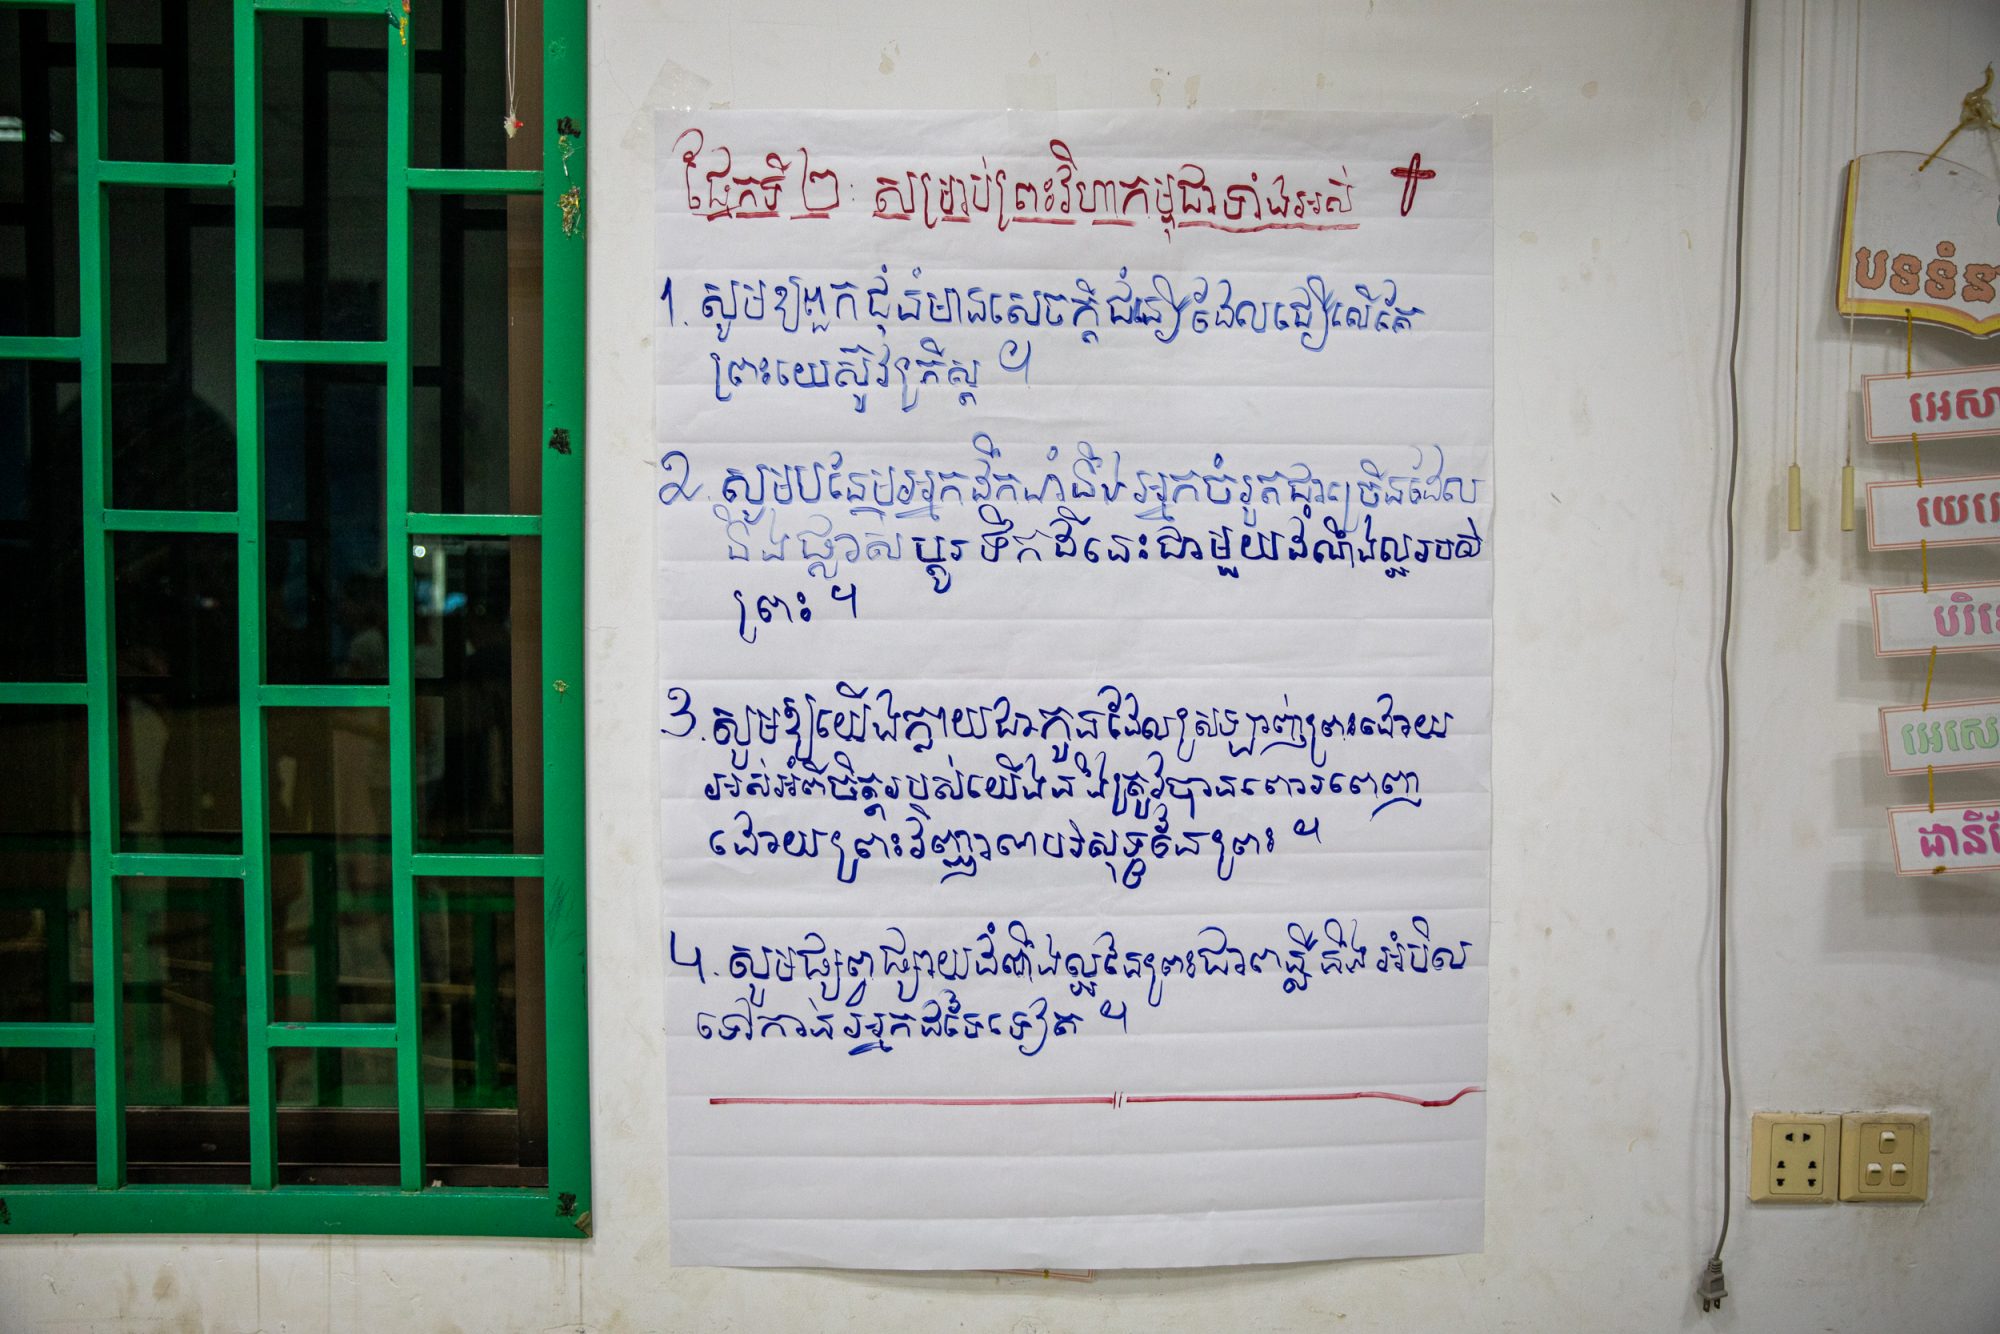 ផ្នែកទី ២: សម្រាប់ព្រះវិហាកម្ពុជាទាំងអស់
1. សូមឱ្យពួកជំនុំមានសេចក្តីជំនឿដែលជឿលើតែ
ព្រះយេស៊ូវគ្រីស្ត ។
2. សូមបន្ថែមអ្នកដឹកនាំនិងអ្នកចំរូតជាច្រើនដែល
នឹងផ្លាស់ប្តូរទឹកដីនេះជាមួយដំណឹងល្អរបស់
ព្រះ ។
3. សូមឱ្យយើងក្លាយជាកូនដែលស្រឡាញ់ព្រះដោយ
អស់អំពីចិត្តរបស់យើងនឹងត្រូវបានពោរពេញ
ដោយព្រះវិញ្ញាណបរិសុទ្ធនៃព្រះ ។
4. សូមផ្សព្វផ្សាយដំណឹងល្អនៃព្រះជាពន្លឺនឹងអំបិល
ទៅកាន់អ្នកដទៃទៀត ។